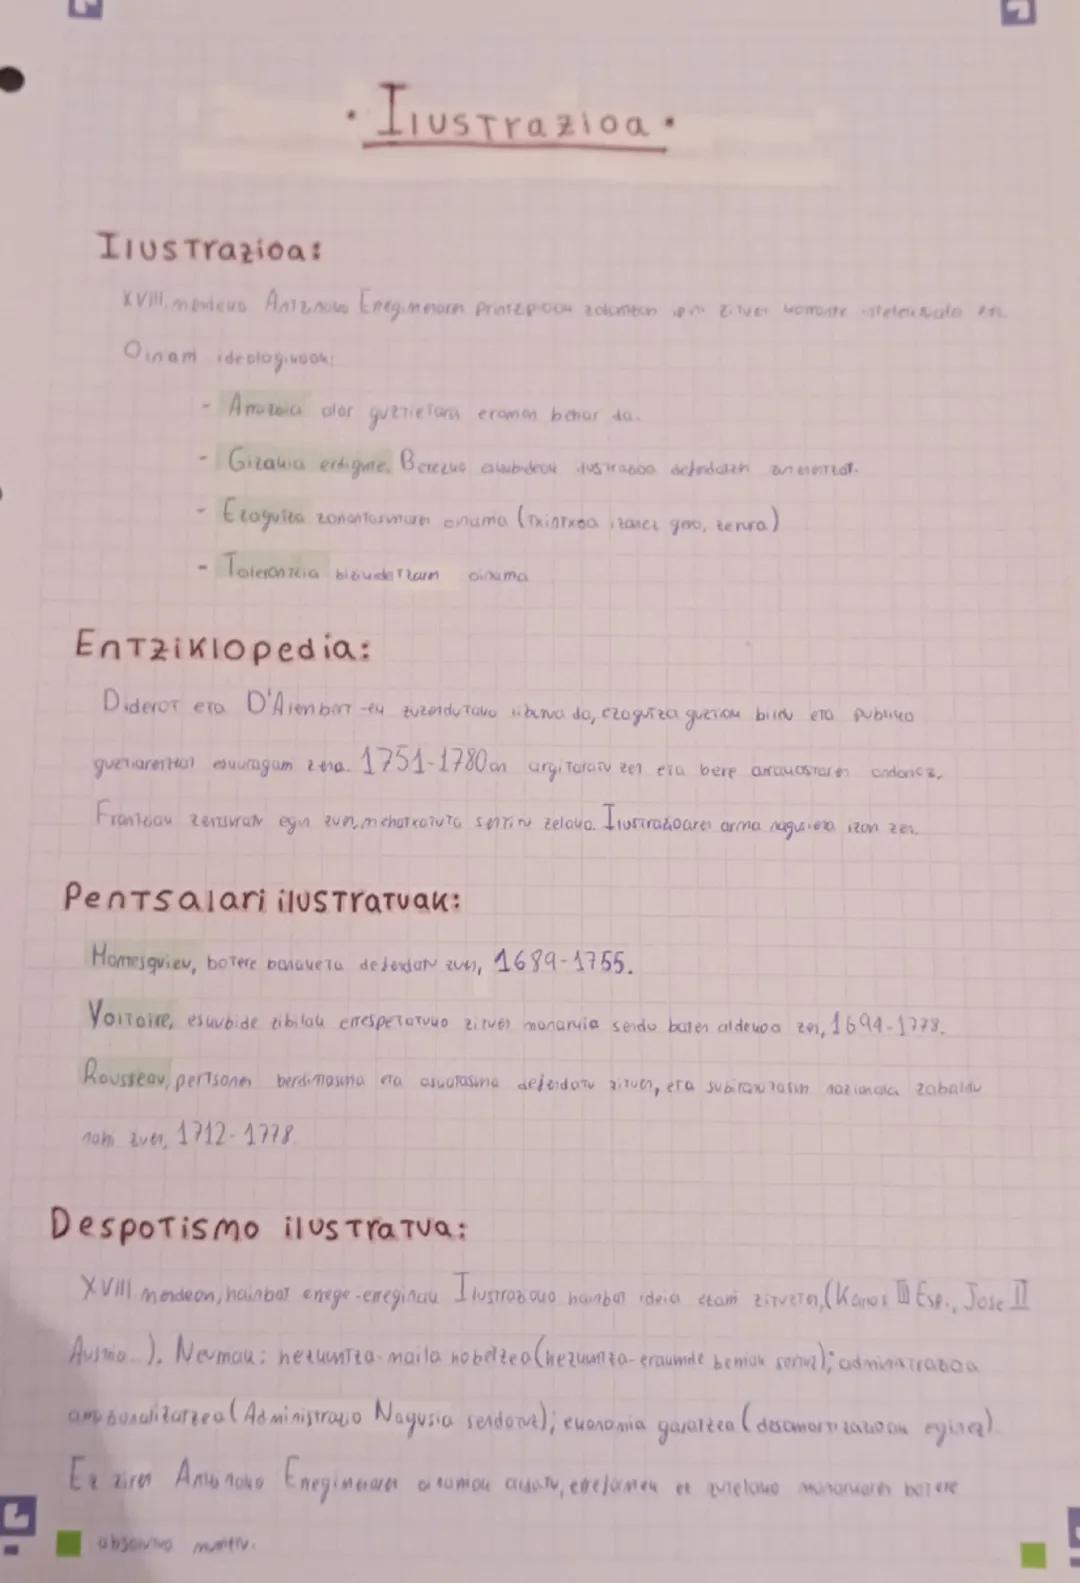 · Ilustrazioa ·
Ilustrazioa:
XVIII. mendeko Antzinako Erregimenaren printzipioak zalantzan jarri zituen korronte intelektuala zen.
Oinarri ideologikoak:
- Arrazoia alor guztietara eraman behar da.
- Gizakia erdigune. Berezko eskubideak ilustrazioa defendatzen zuenentzat.
- Ezagutza zoriontasunaren oinarria (txintxoa izanez gero, zenra)
- Tolerantzia bizikidetzaren oinarria
Entziklopedia:
Diderot eta D'Alenbert-ek zuzendutako liburua da, ezagutza guztiak bildu eta publiko
guztiarentzat eskuragarri zena. 1751-1780an argitaratu zen eta bere arrakastaren ondorioz,
Frantziak zentsuratu egin zuen, mehatxatuta sentitu zelako. Ilustrazioaren arma nagusiena izan zen.
Pentsalari ilustratuak:
Montesquieu, botere banaketa defendatu zuen, 1689-1755.
Voltaire, eskubide zibilak errespetatuko zituen monarkia sendo baten aldekoa zen, 1694-1778.
Rousseau, pertsonen berdintasuna eta askatasuna defendatu zituen, eta subiranotasun nazionala zabaldu
nahi zuen, 1712-1778.
Despotismo ilustratua:
XVIII mendean, hainbat errege-erreginak Ilustrazioko hainbat ideia ezarri zituzten, (Karlos III Esp., Jose II
Austria...). Neurriak: hezkuntza-maila hobetzea (hezkuntza-erakunde berriak sortuz); administrazioa
arrazionalizatzea (Administrazio Nagusia sendotuz); ekonomia garatzea (desamortizazioak eginez).
Ez ziren Antzinako Erregimenaren oinarriak aldatu, erreformek ez zutelako monarkaren botere
absolutua murriztu.